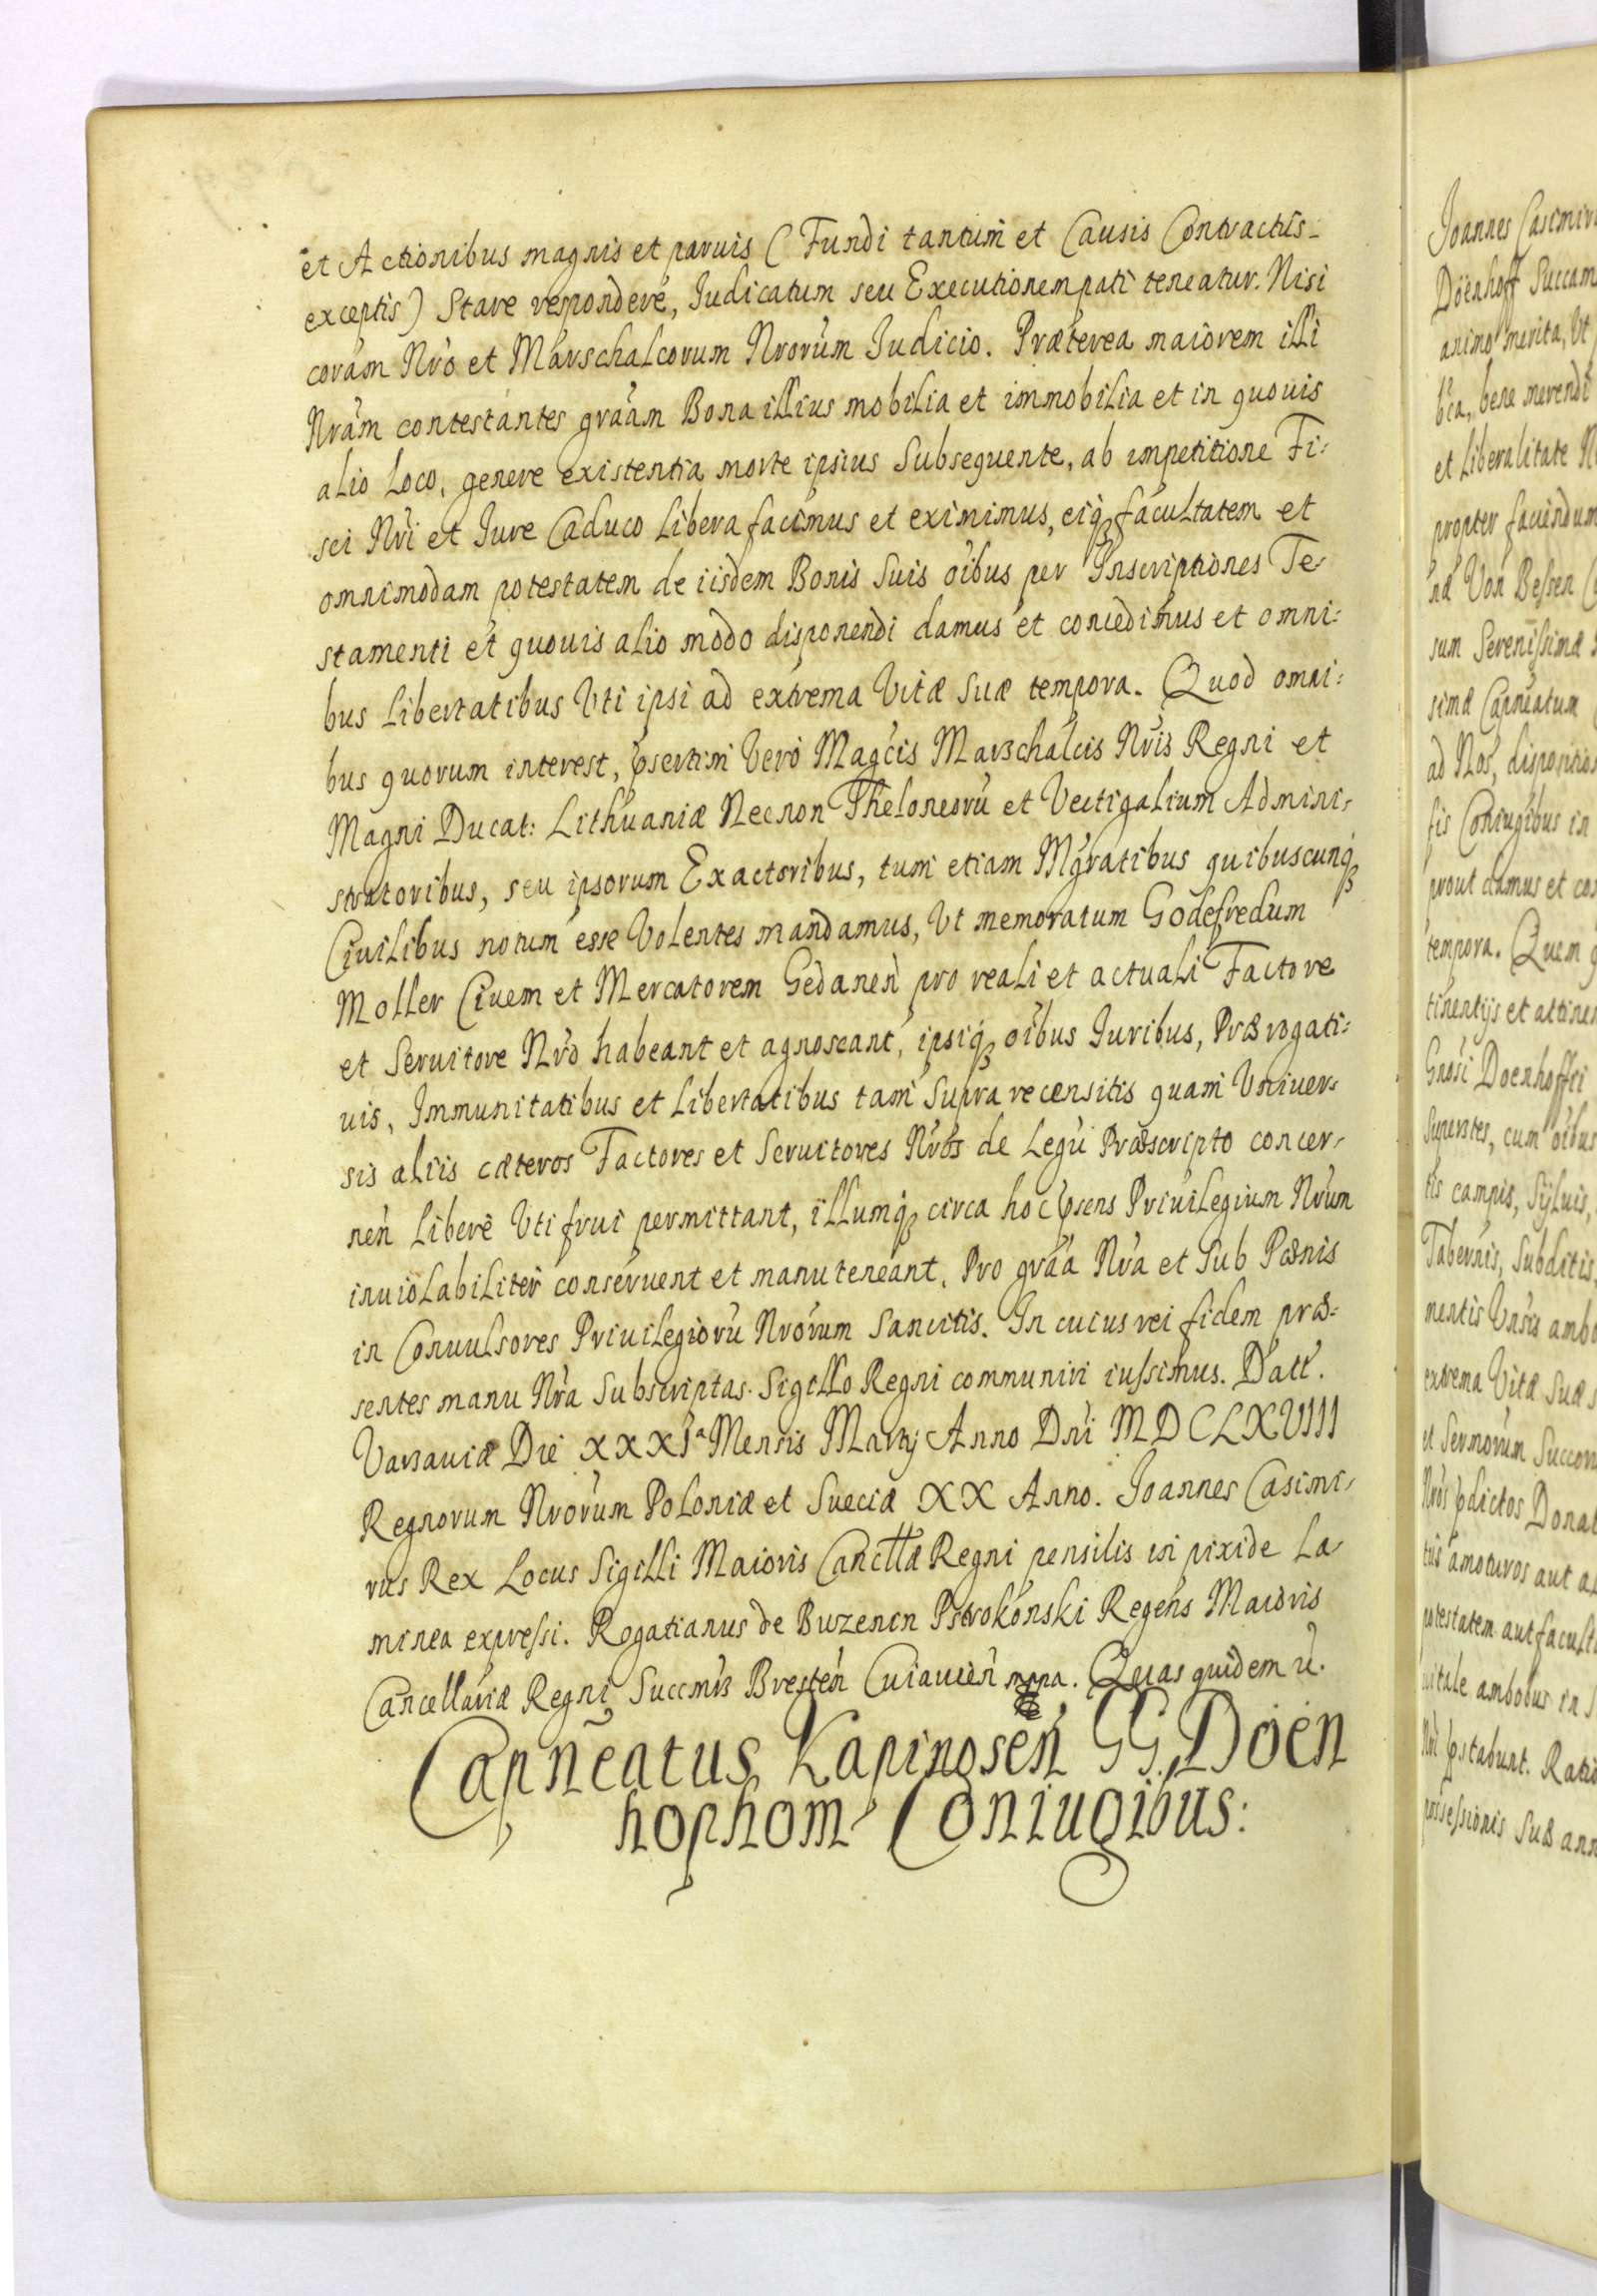 et Actionibus magnis et paruis (Fundi tantum et Causis Contractus
exceptis) Stare respondere, Iudicatum seu Executionem pati teneatur. Nisi
coram Nro et Marschalcorum Nrorum Iudicio. Præterea maiorem illi
Nram contestantes gratiam Bona illius mobilia et immobilia et in quouis
alio Loco, genere existentia morte ipsius Subsequente, ab impetitione Fi-
sci Nri et Iure Caduco libera facimus et eximimus, eiq facultatem et
omnimodam potestatem de iisdem Bonis Suis oibus per Inscriptiones Te-
stamenti et quouis alio modo disponendi damus et concedimus et omni:
bus Libertatibus Vti ipsi ad extrema Vitæ Suæ tempora. Quod omni:
bus quorum interest, psertim Vero Magcis Marschalcis Nris Regni et
Magni Ducat: Lithuaniæ Necnon Theloneoru et Vectigalium Admini-
stratoribus, seu ipsorum Exactoribus, tum etiam Mgratibus quibuscunq
Ciuilibus notum esse Volentes mandamus, Vt memoratum Godefredum
Moller Ciuem et Mercatorem Gedanen pro reali et actuali Factore
et Seruitore Nro habeant et agnoscant, ipsiq oibus Iuribus, Prærogati:
uis, Immunitatibus et Libertatibus tam Supra recensitis quam Vniuer-
sis aliis cæteros Factores et Seruitores Nros de Legu Præscripto concer-
nen Libere Vti frui permittant, illumq circa hoc psens Priuilegium Nrum
inuiolabiliter conseruent et manuteneant. Pro graa Nra et Sub Pænis
in Conuulsores Priuilegioru Nrorum Sancitis. In cuius rei fidem præ:
sentes manu Nra Subscriptas. Sigillo Regni communiri iussimus. Datt.
Varsauiæ Die XXXIa Mensis Martij Anno Dni MDCLXVIII
Regnorum Nrorum Poloniæ et Sueciæ XX Anno. Joannes Casimi-
rus Rex Locus Sigilli Maioris Cancttæ Regni pensilis in pixide La-
minea expressi. Rogatianus de Buzenin Pstrokonski Regens Maioris
Cancellariæ Regni Succmrs Bresten Cuiauien mpna. Quas quidem u.
Capneatus Kapinosen GG. Doen
hophom Coniugibus:
Joannes Casimir
Döenhoff Succam
animo merita, Vt
bca, bene merendi
et Liberalitate
propter faciendum
na Von Bessen
sum Serenissimæ
simæ Capneatum
ad Nos, dispositio
sis Coniugibus in
prout damus et co
tempora. Quem
tinentijs et attine
Gnosi Doenhoffi
Superstes, cum oibus
tis campis, Syluis,
Tabernis, Subditis,
mentis Vnsis ambo
extrema Vitæ Suæ
et Sermorum Succom
Nros pdictos Donat
tuis amoturos aut a
potestatem aut facult
uitale ambobus in
Nri pstabunt. Ratio
possessionis Suæ ann